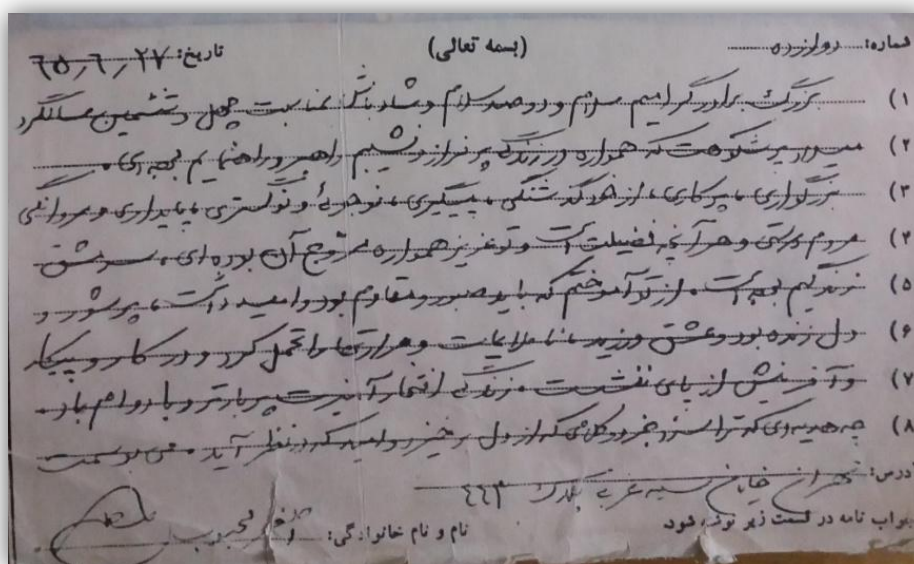 شماره: دوازده (بسمه تعالی) تاریخ: ۶۵٫۶٫۲۷
۱) بزرگ برادر گرامیم سلام و دوصد سلام و شادباش بمناسبت چهل و ششمین سالگرد
۲) میلاد پرشکوهت که همواره در زندگی پر فراز و نشیبم راهبر و راهنمایم بوده‌ای.
۳) بزرگواری، پرکاری، از خودگذشتگی، پیگیری، نوجوئی و نوگستری، پایداری و مردانگی
۴) مردم دوستی و هر آنچه فضیلت است و تو عزیز همواره مروج آن بوده‌ای، سرمشق
۵) زندگیم بوده است. از تو آموختم که باید صبور و مقاوم بود و امید داشت، پرشور و
۶) دل زنده بود و عشق ورزید، ناملایمات و مرارتها را تحمل کرد و در کار و پیکار
۷) و آفرینش از پای ننشست. زندگی افتخارآفرینت پربارتر و با دوام باد.
۸) چه هدیه‌ای که ترا سزد جز در کلامی که از دل برخیزد و امید که در نظر آید. می بوسمت
آدرس: تهران خیابان سپه غربی پلاک ۴۴۳
جواب نامه در قسمت زیر نوشته شود نام و نام خانوادگی: